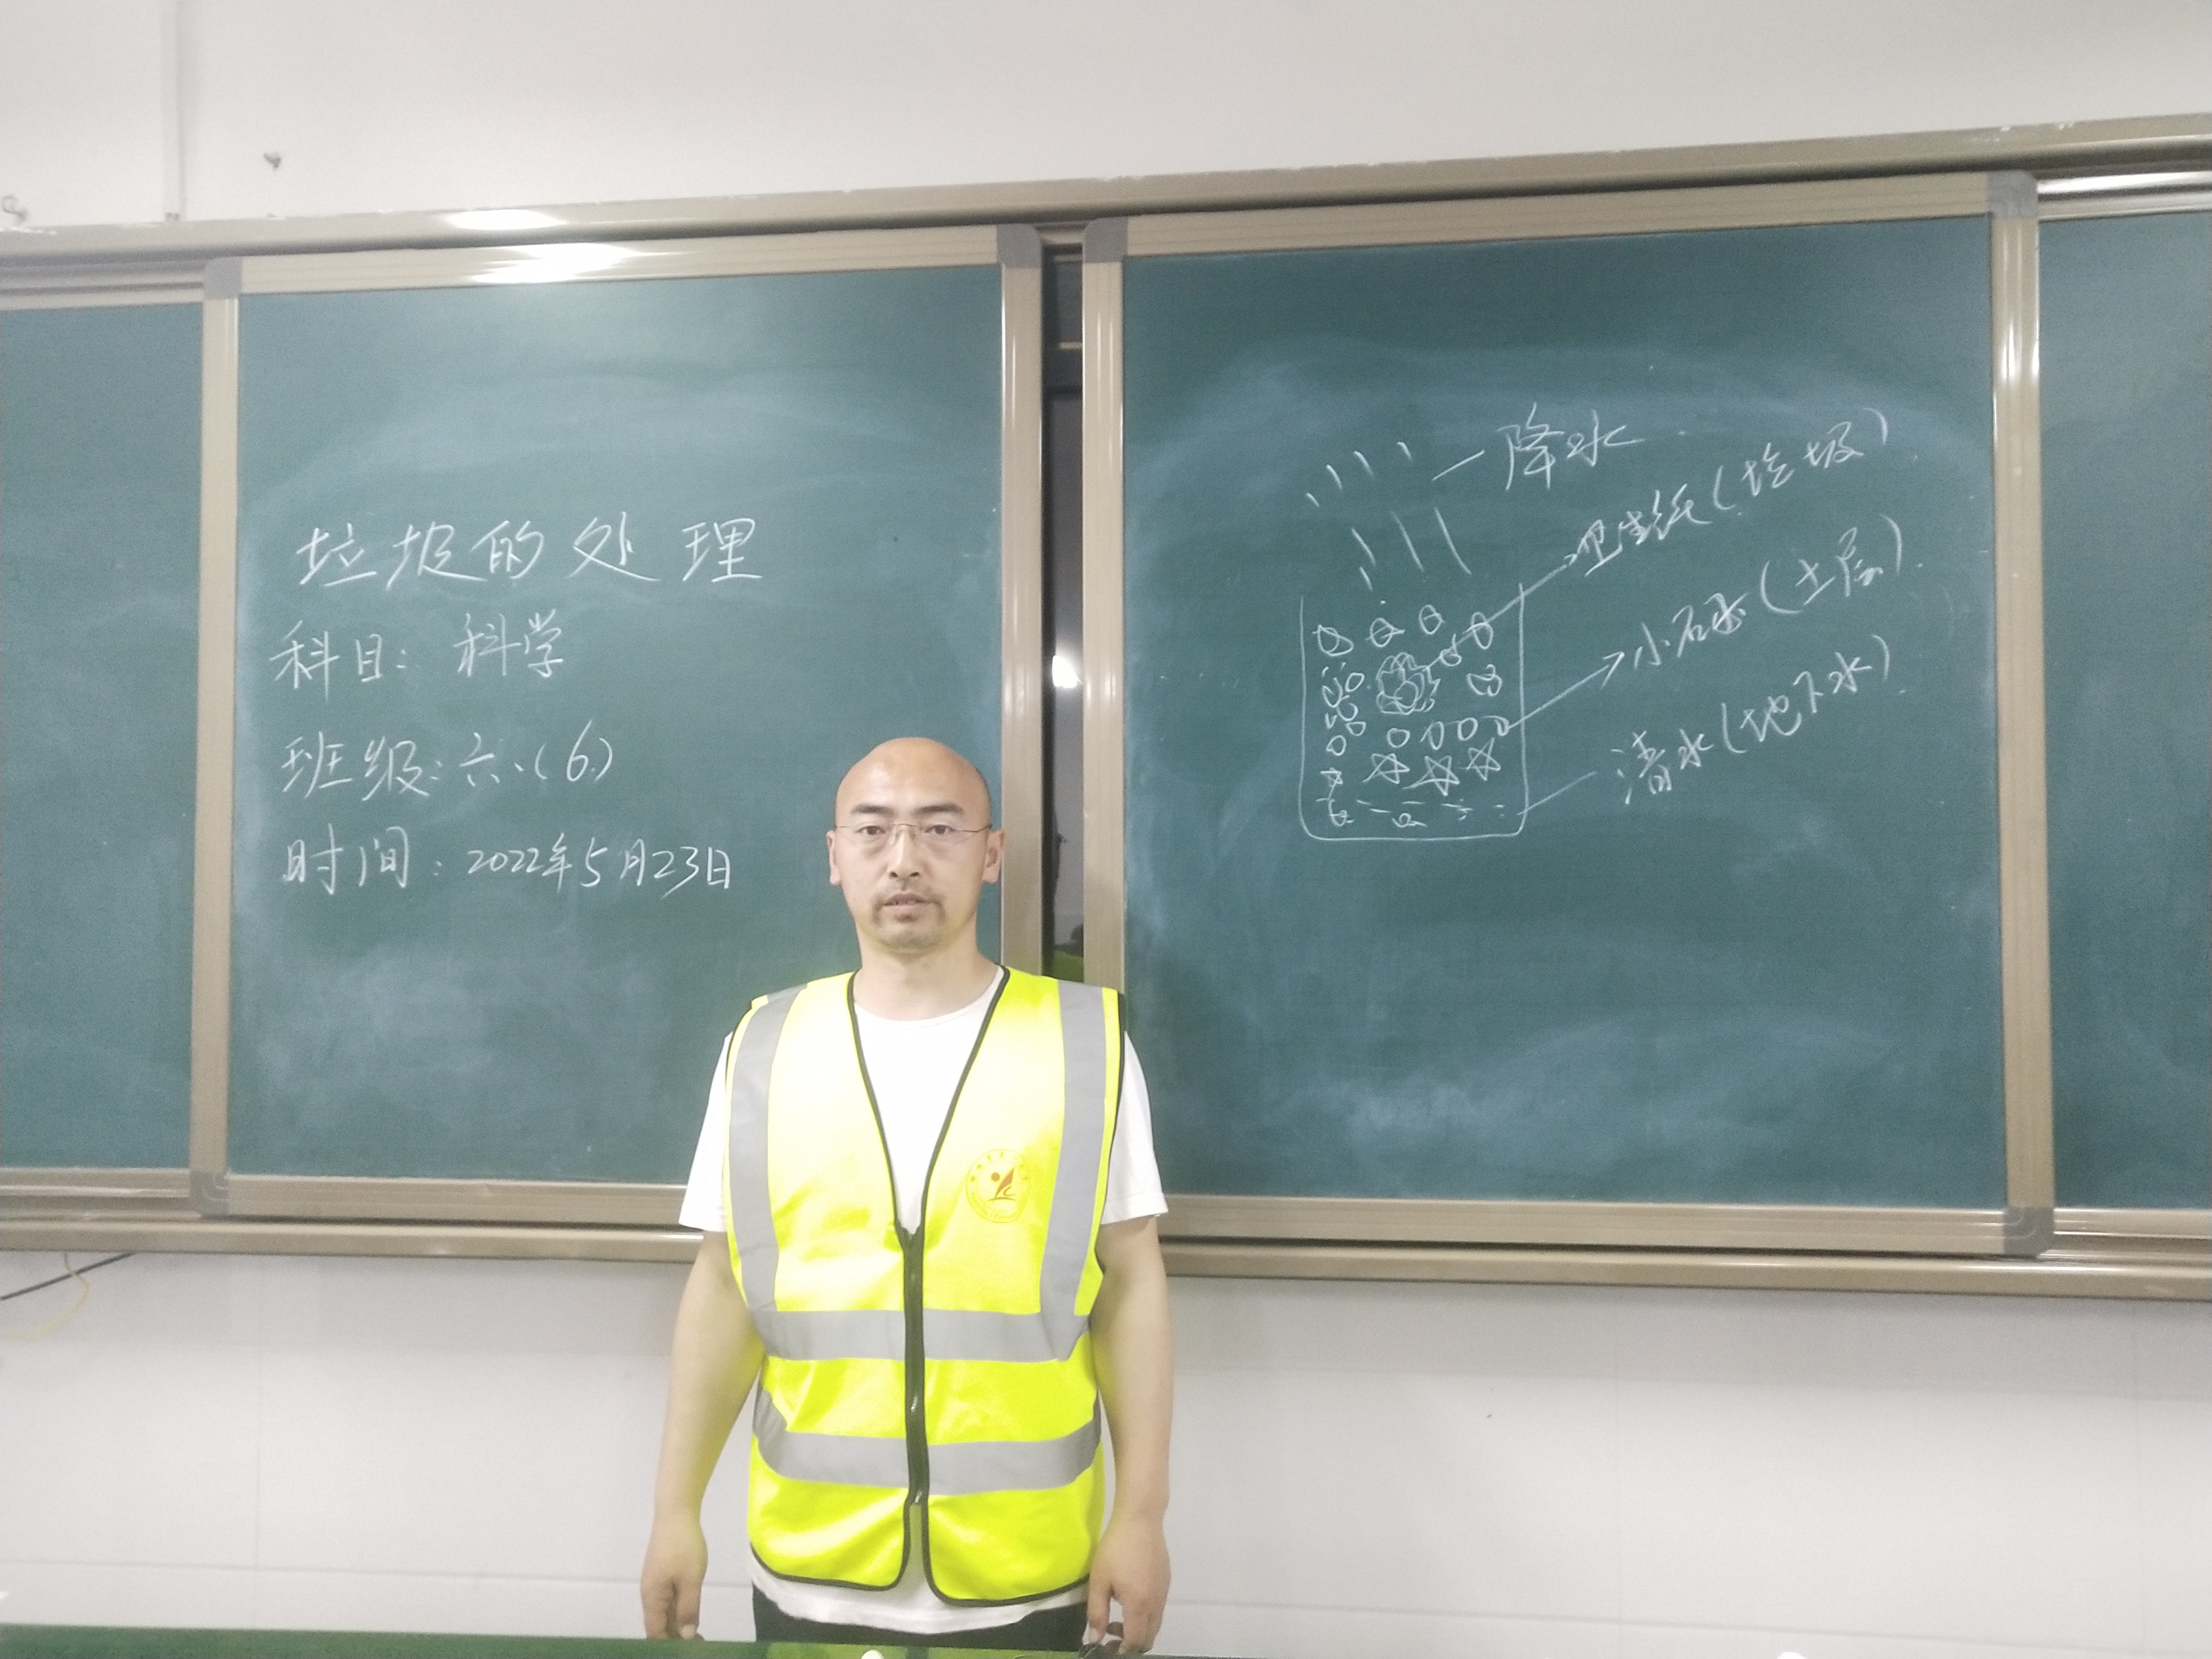 垃圾的处理
科目：科学
班级：六、（6）
时间：2022年5月23日
降水
卫生纸（垃圾）
小石子（土层）
清水（地下水）